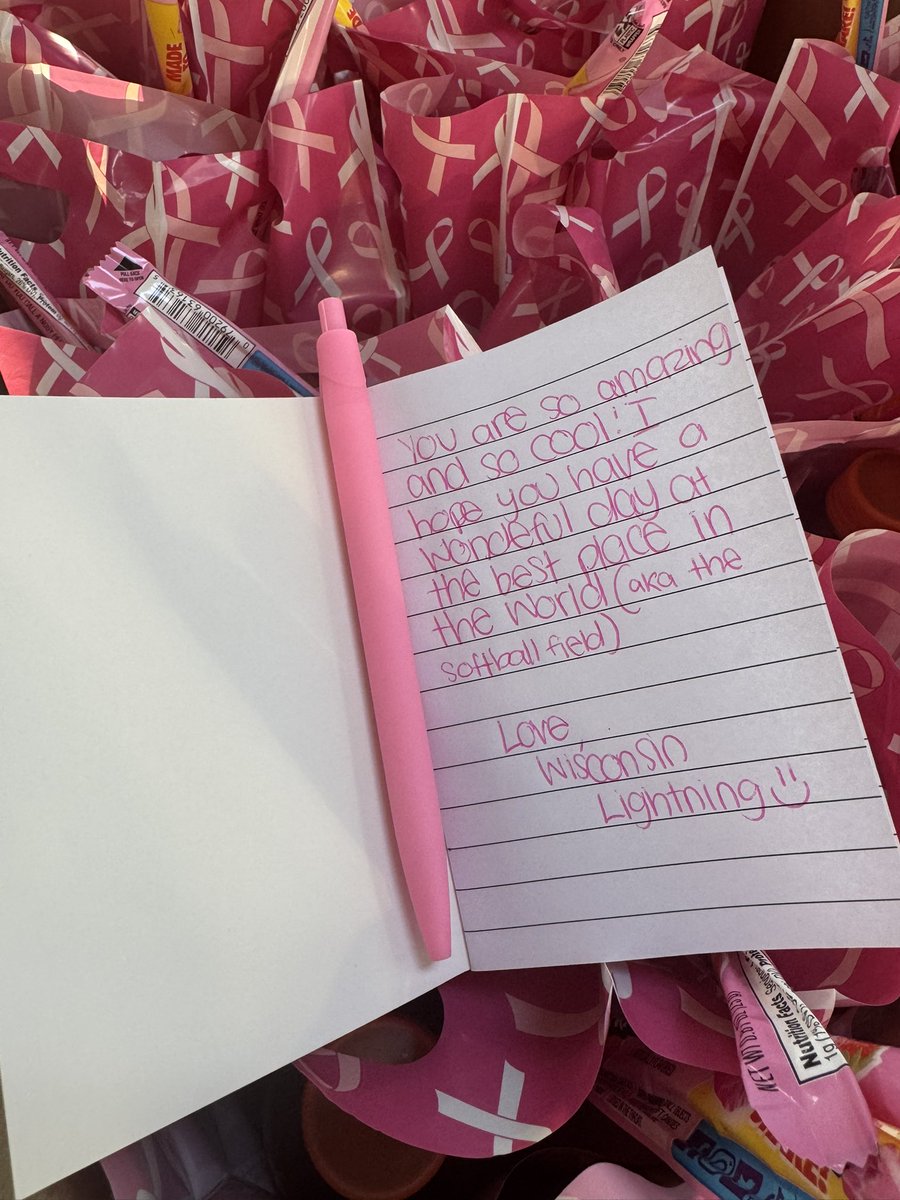 MADE
PULL BACK
Nutrition Facts
You are so amazing
and so cool! I
hope you have a
wonderful day at
the best place in
the world (aka the
softball field)
Love,
Wisconsin
Lightning
Nutrition Facts
NET WT